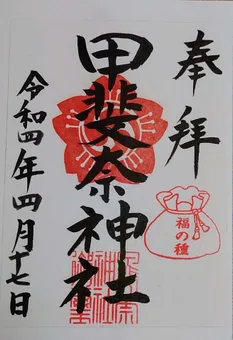 奉拝
甲斐奈神社
福の種
令和四年四月十七日